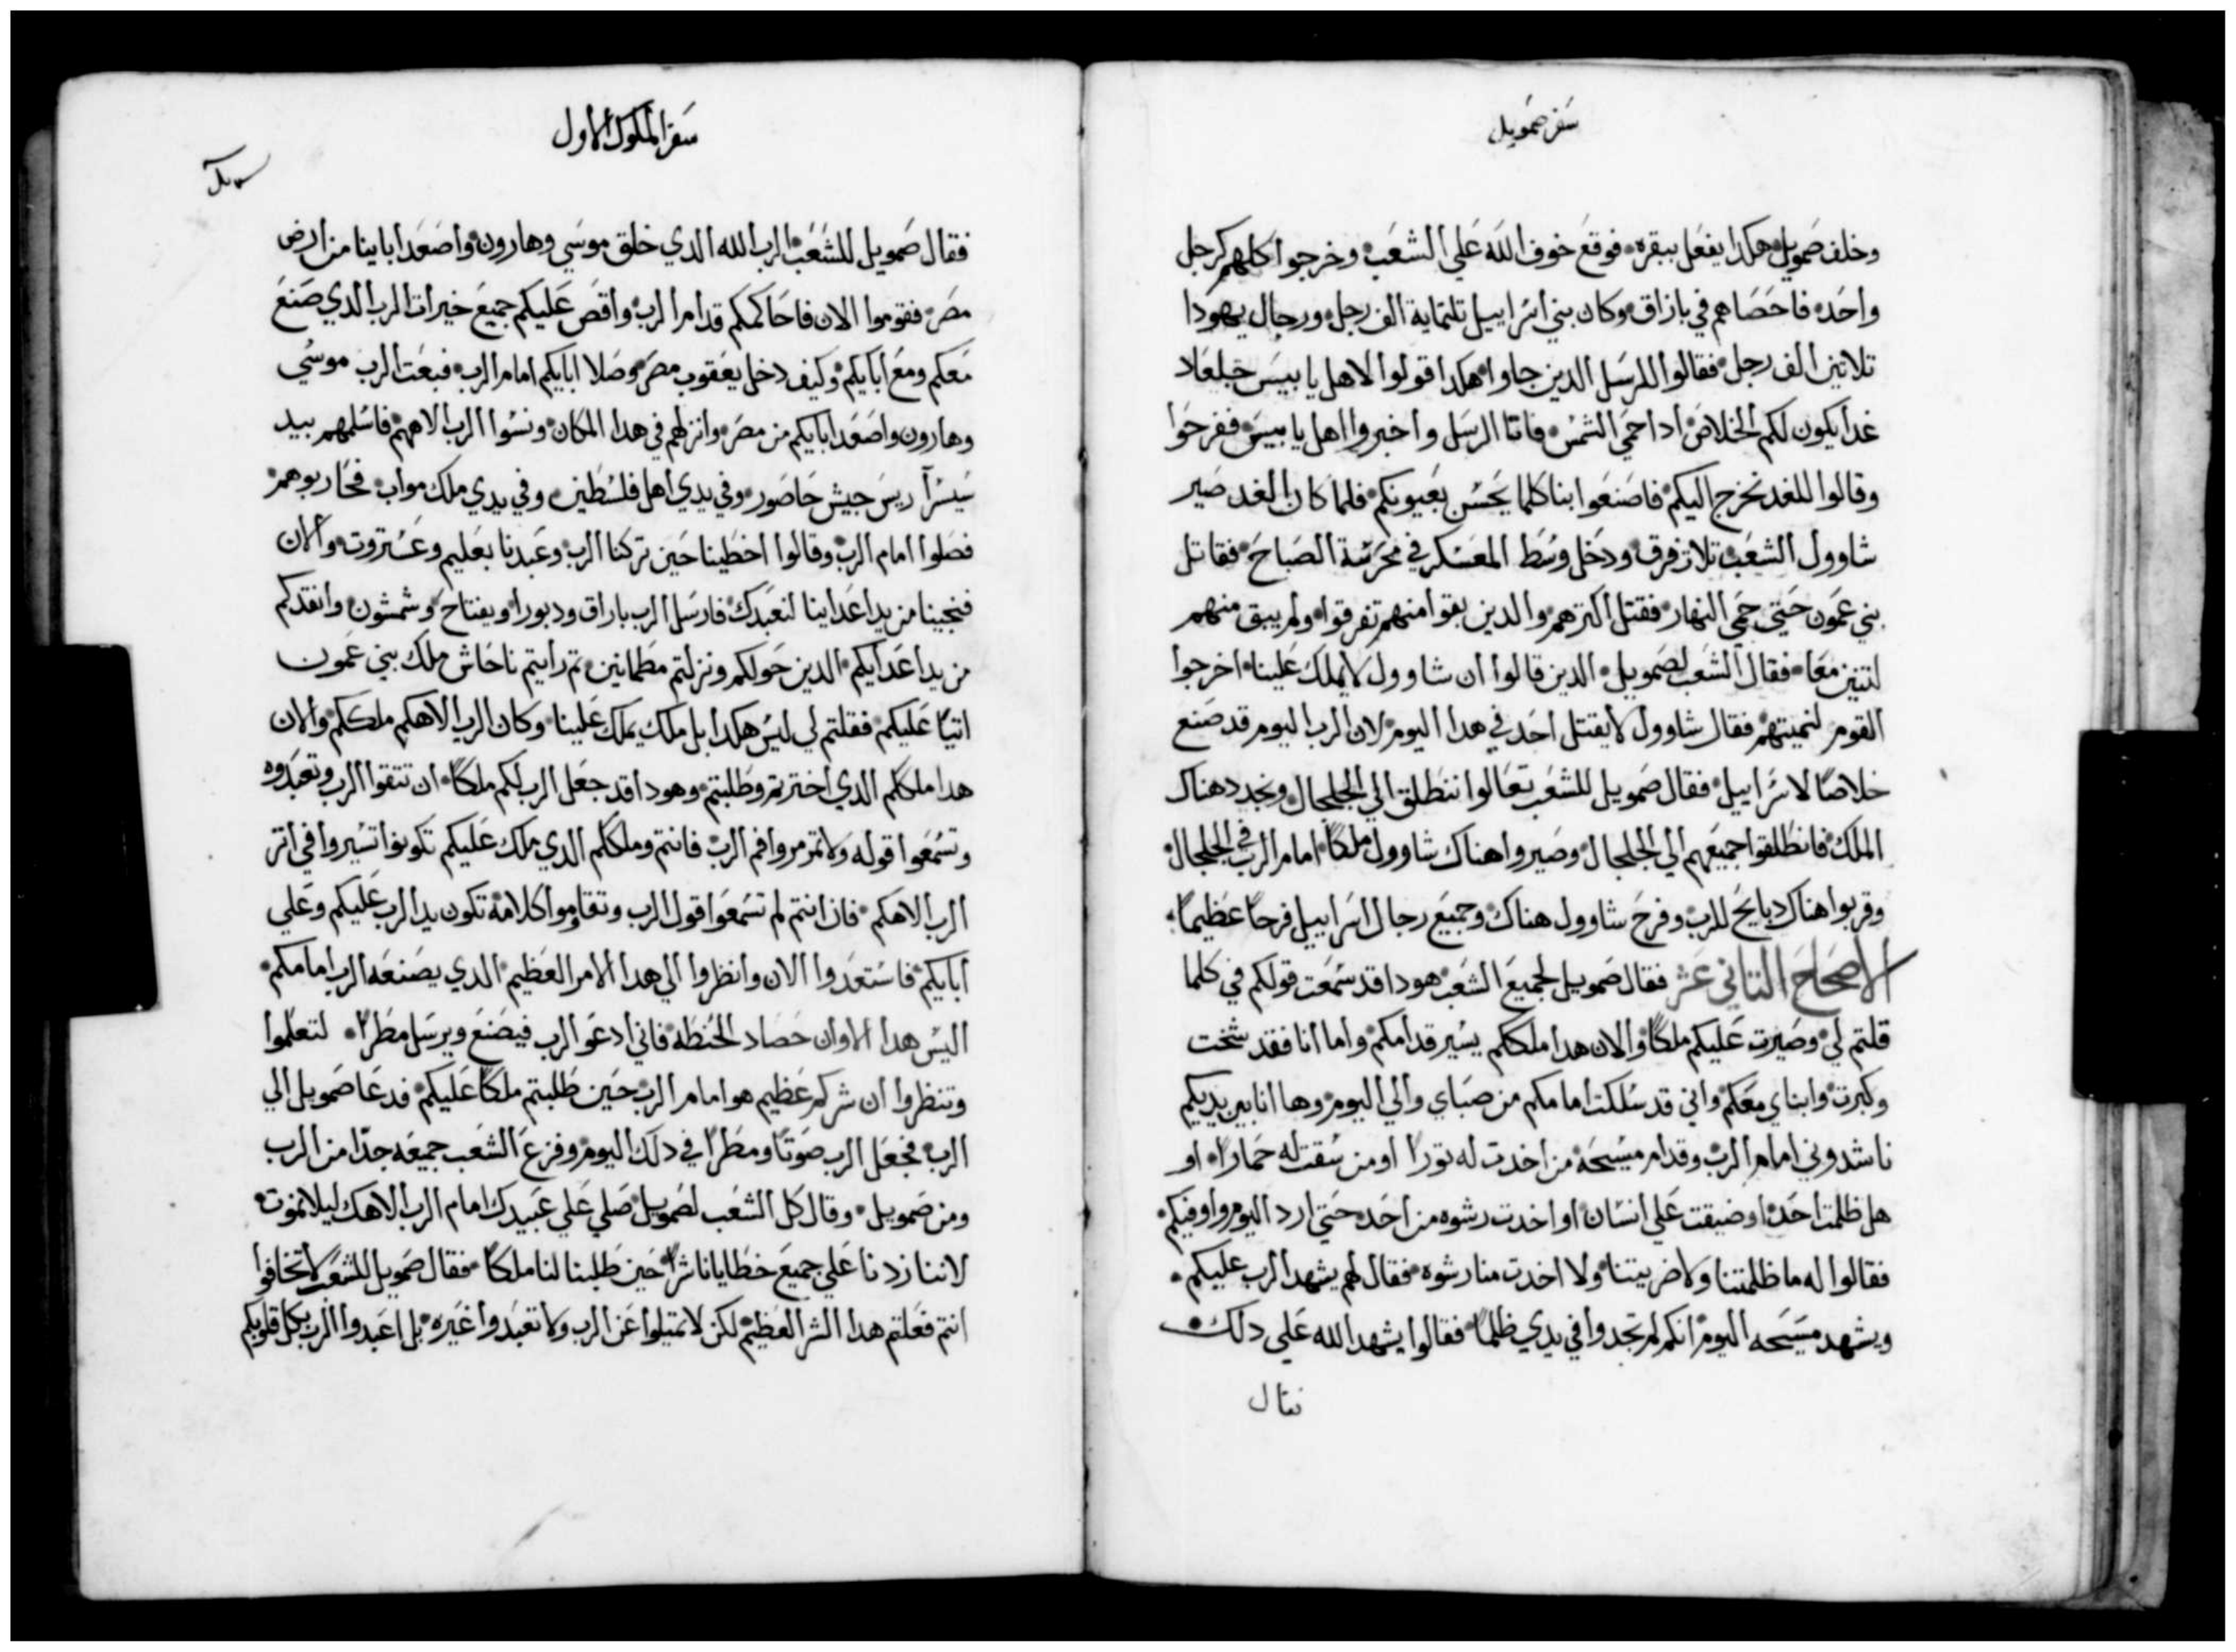 سفر صمويل
وخلف صمويل هكدا يفعل ببقره فوقع خوف الله علي الشعب وخرجوا كلهم كرجل
واحد فاحصاهم في بازاق وكان بني اسراييل تلتماية الف رجل ورجال يهودا
تلاتين الف رجل فقالوا للرسل الدين جاوا هكدا قولوا لاهل يابيس جلعاد
غدا يكون لكم الخلاص ادا حمي الشمس فاتا الرسل واخبروا اهل يابيس ففرحوا
وقالوا للغد نخرج اليكم فاصنعوا بنا كلما يحسن بعيونكم فلما كان الغد صير
شاوول الشعب تلات فرق ودخل وسط المعسكر في محرسة الصباح فقاتل
بني عمون حتي حمي النهار فقتل اكترهم والدين بقوا منهم تفرقوا ولم يبق منهم
اتنين معا فقال الشعب لصمويل الدين قالوا ان شاوول لا يملك علينا اخرجوا
القوم لنميتهم فقال شاوول لا يقتل احد في هدا اليوم لان الرب اليوم قد صنع
خلاصا لاسراييل فقال صمويل للشعب تعالوا ننطلق الي الجلجال ونجدد هناك
الملك فانطلقوا جميعهم الي الجلجال وصيروا هناك شاوول ملكا امام الرب في الجلجال
وقربوا هناك دبايح للرب وفرح شاوول هناك وجميع رجال اسراييل فرحا عظيما
الاصحاح التاني عشر فقال صمويل لجميع الشعب هودا قد سمعت قولكم في كلما
قلتم لي وصيرت عليكم ملكا والان هدا ملككم يسير قدامكم واما انا فقد شخت
وكبرت وابناي معكم واني قد سلكت امامكم من صباي والي اليوم وها انا بين يديكم
ناشدوني امام الرب وقدام مسيحه من اخدت له تورا او من سقت له حمارا او
هل ظلمت احد او ضيقت علي انسان او اخدت رشوه من احد حتي ارد اليوم واوفيكم
فقالوا له ما ظلمتنا ولا ضريتنا ولا اخدت منا رشوه فقال لهم يشهد الرب عليكم
ويشهد مسيحه اليوم انكم لم تجدوا في يدي ظلما فقالوا يشهد الله علي دلك
فقال
سفر الملوك الاول
فقال صمويل للشعب الرب الله الدي خلق موسي وهارون واصعد اباينا من ارض
مصر فقوموا الان فاحاكمكم قدام الرب واقص عليكم جميع خيرات الرب الدي صنع
معكم ومع ابايكم وكيف دخل يعقوب مصر وصلا ابايكم امام الرب فبعت الرب موسي
وهارون واصعد ابايكم من مصر وانزلهم في هدا المكان ونسوا الرب الاههم فاسلمهم بيد
سيسرا ريس جيش حاصور وفي يدي اهل فلسطين وفي يدي ملك مواب فحاربوهم
فصلوا امام الرب وقالوا اخطينا حين تركنا الرب وعبدنا بعليم وعستروت والان
فنجينا من يد اعداينا لنعبدك فارسل الرب باراق ودبورا ويفتاح وشمشون وانقدكم
من يد اعدايكم الدين حولكم ونزلتم مطمانين تم رايتم ناحاش ملك بني عمون
اتيا عليكم فقلتم لي ليس هكدا بل ملك يملك علينا وكان الرب الاهكم ملككم والان
هدا ملككم الدي اخترتم وطلبتم وهودا قد جعل الرب لكم ملكا ان تتقوا الرب وتعبدوه
وتسمعوا قوله ولا تمرمروا فم الرب فانتم وملككم الدي ملك عليكم تكونوا تسيروا في اتر
الرب الاهكم فان انتم لم تسمعوا قول الرب وتقاوموا كلامه تكون يد الرب عليكم وعلي
ابايكم فاستعدوا الان وانظروا الي هدا الامر العظيم الدي يصنعه الرب امامكم
اليس هدا الاوان حصاد الحنطه فاني ادعو الرب فيصنع ويرسل مطرا لتعلموا
وتنظروا ان شركم عظيم هو امام الرب حين طلبتم ملكا عليكم فدعا صمويل الي
الرب فجعل الرب صوتا ومطرا في دلك اليوم وفزع الشعب جميعه جدا من الرب
ومن صمويل وقال كل الشعب لصمويل صلي علي عبيدك امام الرب الاهك ليلا نموت
لاننا زدنا علي جميع خطايانا شرا حين طلبنا لنا ملكا فقال صمويل للشعب لا تخافوا
انتم فعلتم هدا الشر العظيم لكن لا تميلوا عن الرب ولا تعبدوا غيره بل اعبدوا الرب بكل قلوبكم